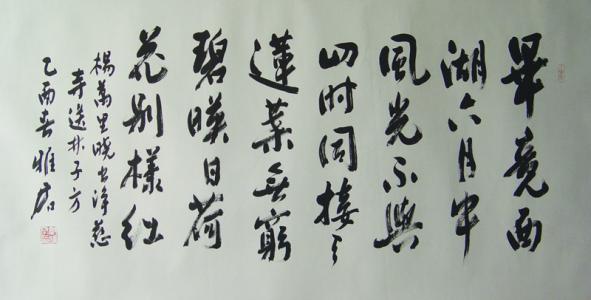 畢竟西
湖六月中
風光不與
四时同接天
蓮葉无窮
碧暎日荷
花别樣红
楊萬里曉出淨慈
寺送林子方
乙酉春雅